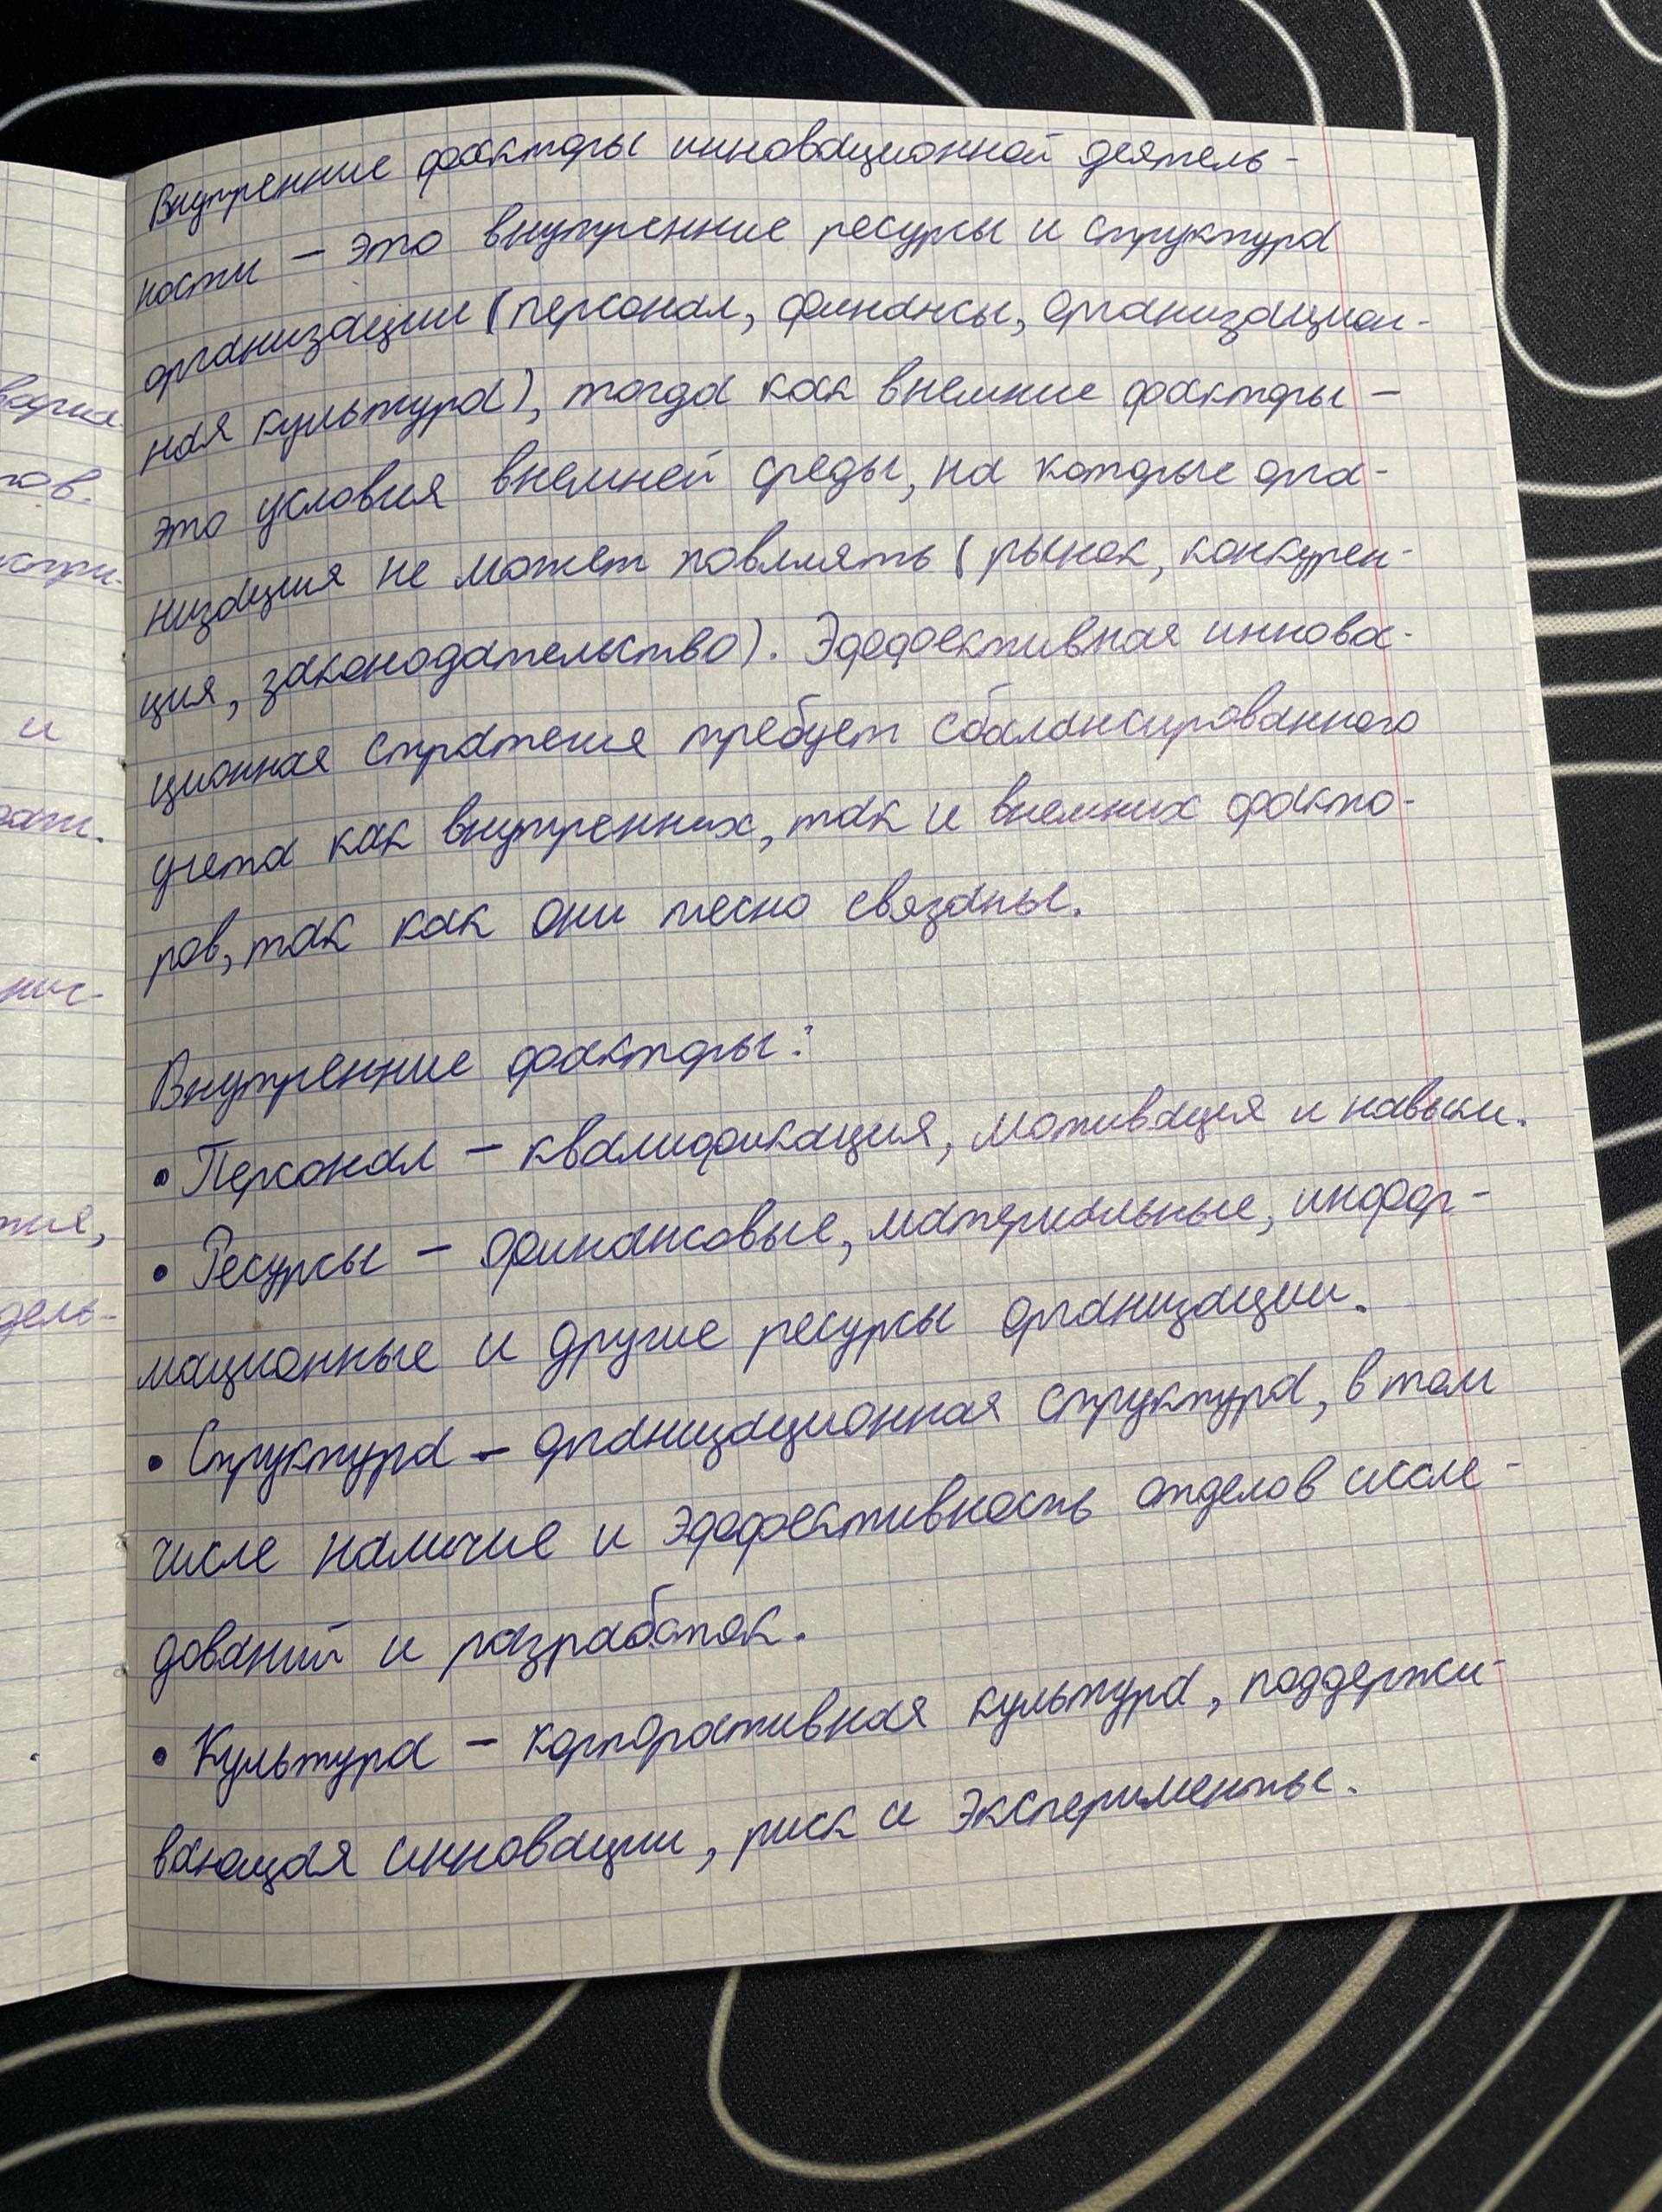 Внутренние факторы инновационной деятель-
ности – это внутренние ресурсы и структура
организации (персонал, финансы, организацион-
ная культура), тогда как внешние факторы –
это условия внешней среды, на которые орга-
низация не может повлиять (рынок, конкурен-
ция, законодательство). Эффективная иннова-
ционная стратегия требует сбалансированного
учета как внутренних, так и внешних факто-
ров, так как они тесно связаны.
Внутренние факторы:
• Персонал – квалификация, мотивация и навыки.
• Ресурсы – финансовые, материальные, инфор-
мационные и другие ресурсы организации.
• Структура – организационная структура, в том
числе наличие и эффективность отделов иссле-
дований и разработок.
• Культура – корпоративная культура, поддержи-
вающая инновации, риск и эксперименты.